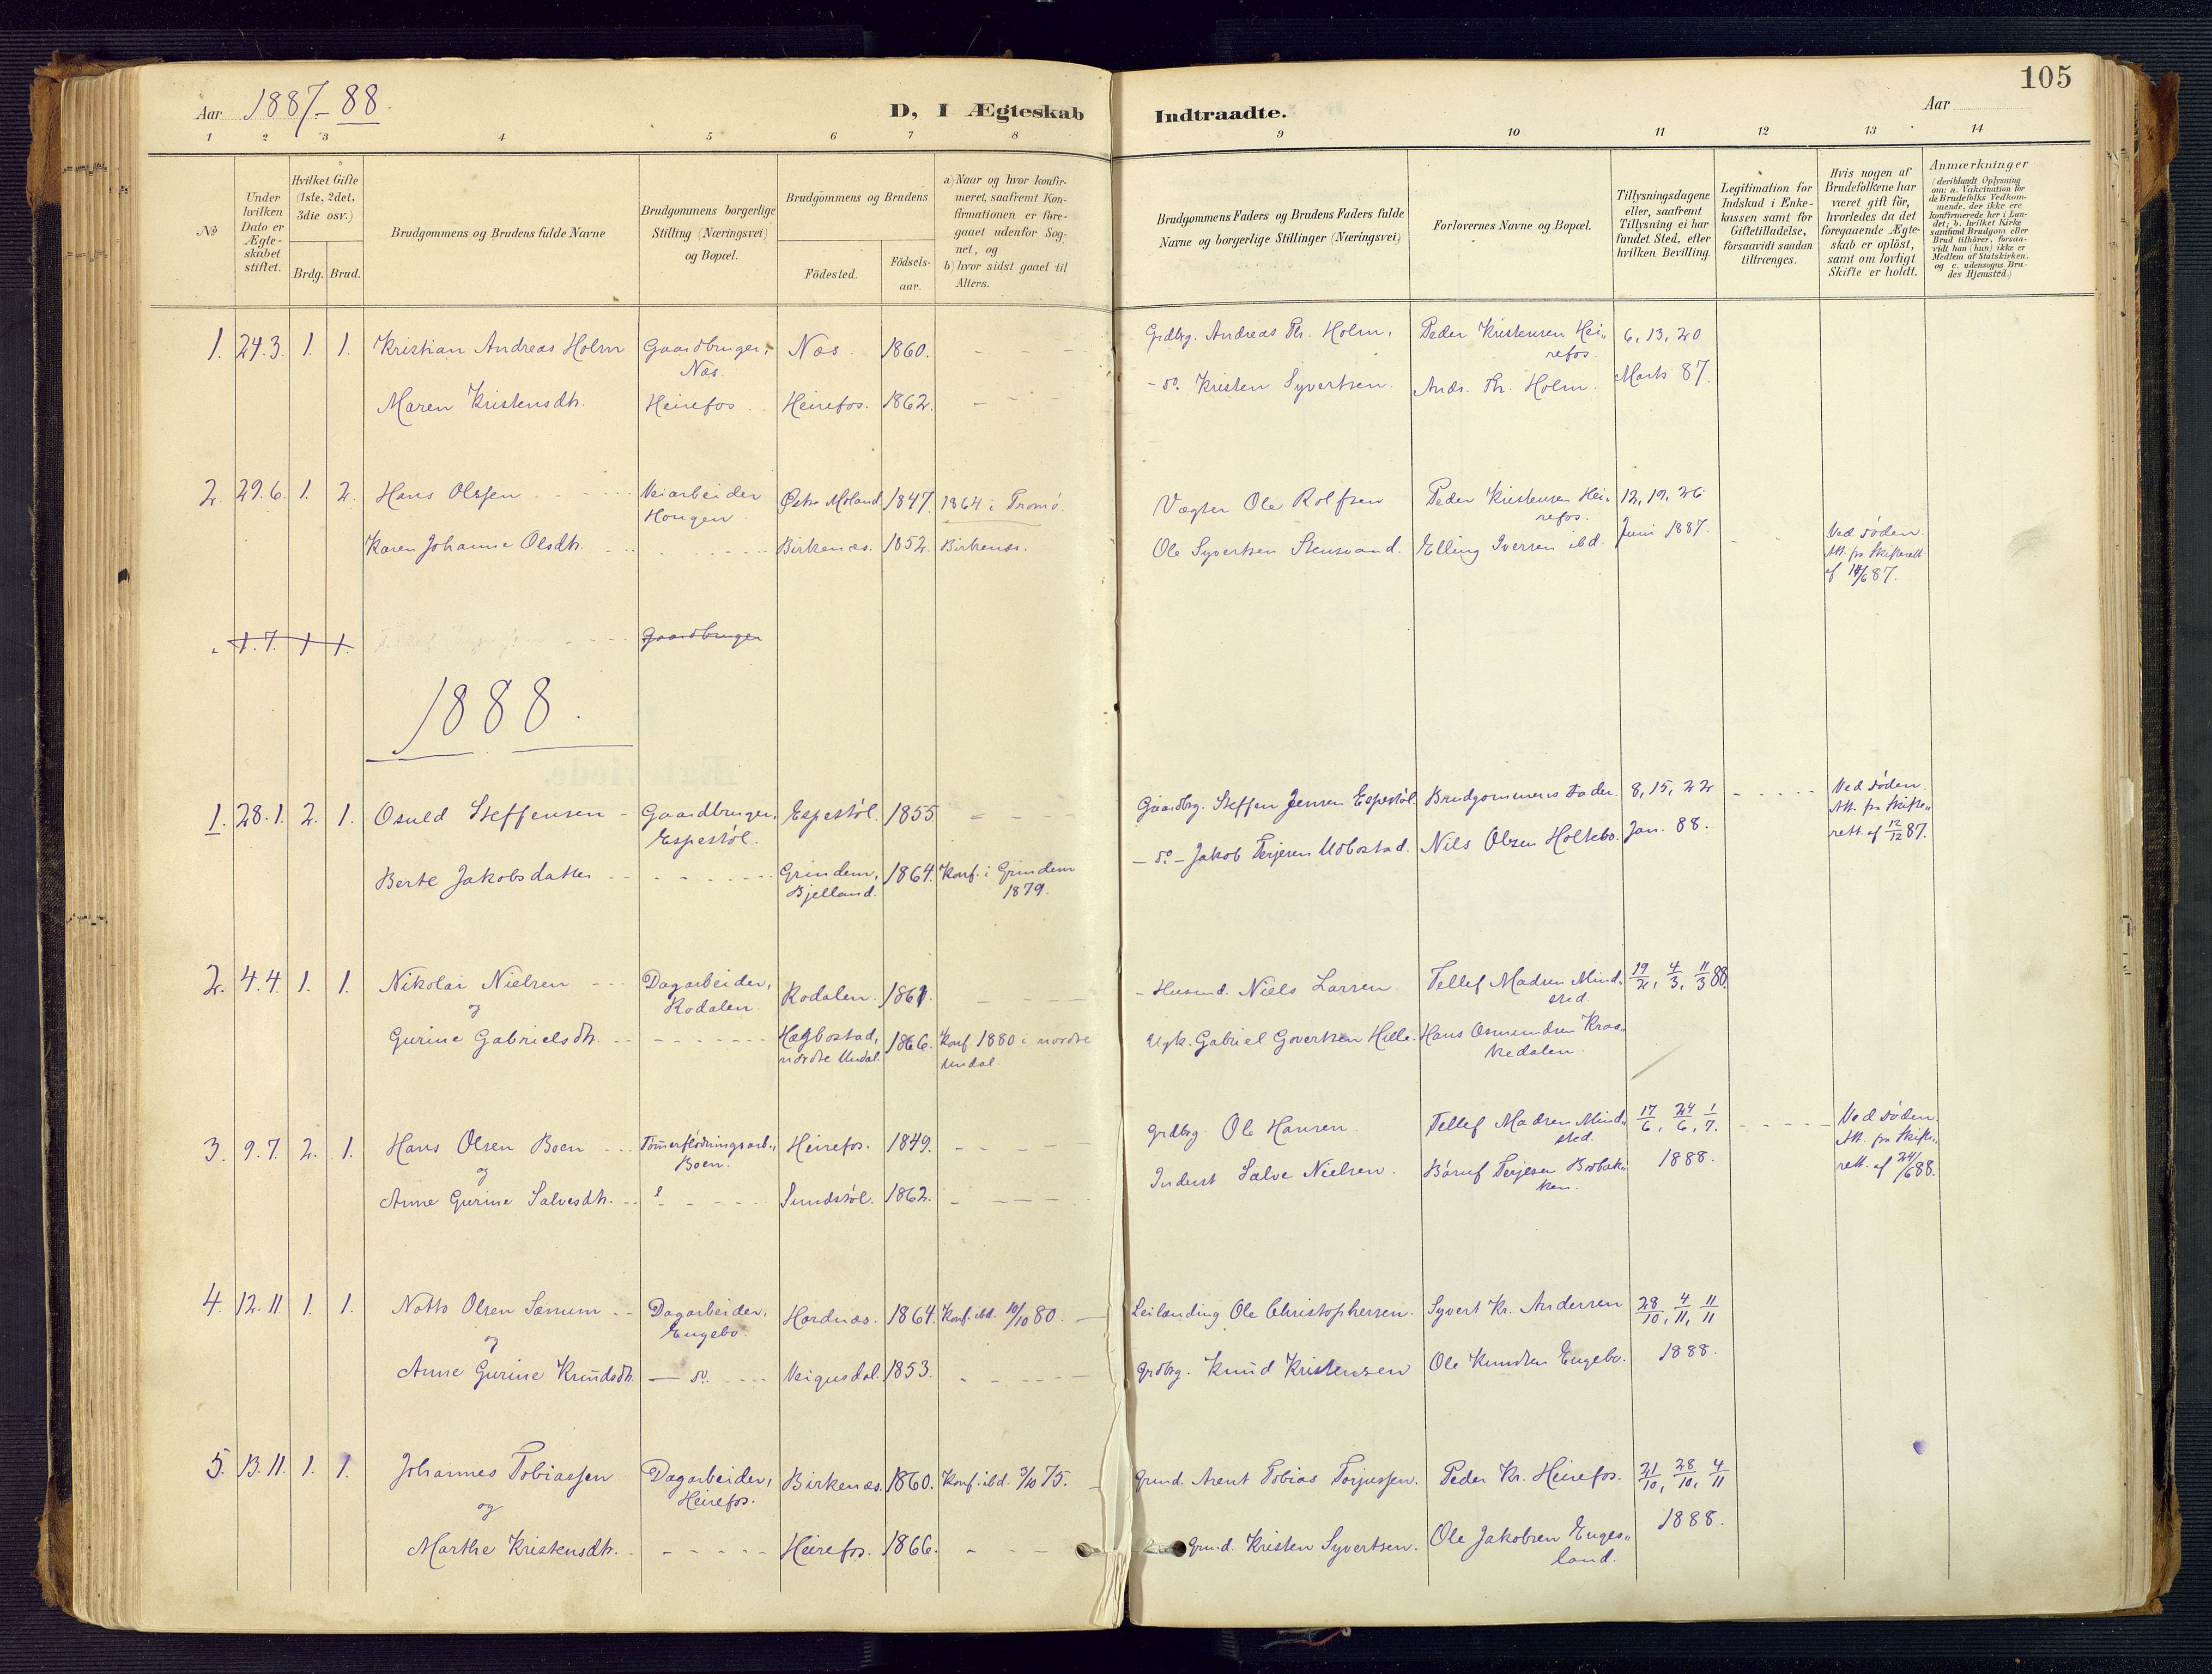 105
Aar 1887-88.
D, I Ægteskab Indtraadte.
Aar
1 2 3 4 5 6 7 8 9 10 11 12 13 14
No
Under hvilken Dato er Ægteskabet stiftet.
Hvilket Gifte (1ste, 2det, 3die osv.)
Brdg. Brud.
Brudgommens og Brudens fulde Navne
Brudgommens borgerlige Stilling (Næringsvei) og Bopæl.
Brudgommens og Brudens
Födested.
Födsels-aar.
a) Naar og hvor konfirmeret, saafremt Konfirmationen er foregaaet udenfor Sognet, og
b) hvor sidst gaaet til Alters.
Brudgommens Faders og Brudens Faders fulde Navne og borgerlige Stillinger (Næringsvei)
Forlovernes Navne og Bopæl.
Tillysningsdagene eller, saafremt Tillysning ei har fundet Sted, efter hvilken Bevilling.
Legitimation for Indskud i Enkekassen samt for Giftetilladelse, forsaavidt saadan tiltrænges.
Hvis nogen af Brudefolkene har været gift för, hvorledes da det foregaaende Ægteskab er oplöst, samt om lovligt Skifte er holdt.
Anmærkninger (deriblandt Oplysning om: a. Vakcination for de Brudefolks Vedkommende, der ikke ere konfirmerede her i Landet; b. hvilket Kirkesamfund Brudgom eller Brud tilhörer, forsaavidt han (hun) ikke er Medlem af Statskirken, og c. udensogns Brudes Hjemsted.)
1. 24.3. 1. 1. Kristian Andreas Holm Gaardbruger, Næs. Næs. 1860. Grdbrg. Andreas Th. Holm. Peder Kristensen Heirefos. 6, 13, 20
Maren Kristensdtr. Heirefos Heirefos. 1862. - do. Kristen Syvertsen. Andr. Th. Holm. Marts 87.
2. 29.6. 1. 2. Hans Olsen Veiarbeider Hougen Østre Moland 1847. 1864 i Tromø. Vægter Ole Rolfsen Peder Kristensen Heirefos. 12, 19, 26
Karen Johanne Olsdtr. Birkenæs. 1852. Birkenæs. Ole Syvertsen Stensvand. Elling Iversen ibd. Juni 1887. Ved døden. Att. fra Skifterett af 14/6 87.
1.7. 1 1. Gaardbruger
1888.
1. 28.1. 2. 1. Osuld Steffensen Gaardbruger, Espestöl. Espestöl. 1855 Gaardbrg. Steffen Jensen Espestöl. Brudgommens Fader. 8, 15, 22 Ved døden. Att. fra Skifterett. af 12/12 87.
Berte Jakobsdatter Grindem, Bjelland. 1864. Konf. i Grindem 1879. - do - Jakob Terjesen Udbostad. Nils Olsen Holtebo. Jan. 88.
2. 4.4. 1. 1. Nikolai Nielsen Dagarbeider, Rodalen. Rodalen. 1861. Husmd. Niels Larsen Tellef Madsen Mindsted. 19/2, 4/3, 11/3 88.
og
Gurine Gabrielsdtr. Hægbostad, nordre Undal. 1866. Konf 1880 i nordre Undal. Ugk. Gabriel Govertsen Hille. Hans Osmundsen Krosvedalen.
3. 9.7. 2. 1. Hans Olsen Boen Tömmerflödningsarb., Boen. Heirefos. 1849. Grdbrg. Ole Hansen Tellef Madsen Mindsted. 17/6, 24/6, 1/7. Ved døden. Att. fra Skifterett. af 24/6 88.
og
Anne Gurine Salvesdtr. Sundstöl. 1862. Inderst Salve Nielsen. Böruf Terjesen Bosbakken. 1888.
4. 12.11 1. 1. Notto Olsen Særum Dagarbeider, Engebo. Hordnæs. 1864. Konf. ibd. 10/10 80. Leilanding Ole Christophersen. Syvert Kr. Andersen 28/10, 4/11, 11/11
og
Anne Gurine Knudsdtr. - do. Veigusdal. 1853. Grdbrg. Knud Kristensen Ole Knudsen Engebo. 1888.
5. 13.11. 1. 1. Johannes Tobiassen Dagarbeider, Heirefos. Birkenæs. 1860. Konf. ibd. 3/10 75. Grmd. Arent Tobias Torjussen. Peder Kr. Heirefos. 21/10, 28/10, 4/11
og
Marthe Kristensdtr. Heirefos. 1866. Grmd. Kristen Syvertsen. Ole Jakobsen Engesland. 1888.